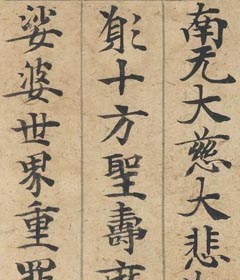 南无大慈大悲
願十方聖壽
娑婆世界重